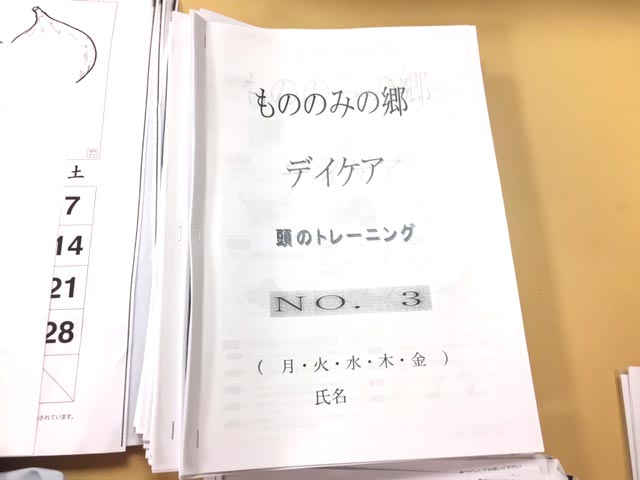 もののみの郷
デイケア
頭のトレーニング
NO. 3
( 月・火・水・木・金 )
氏名
土
7
14
21
28
されています。